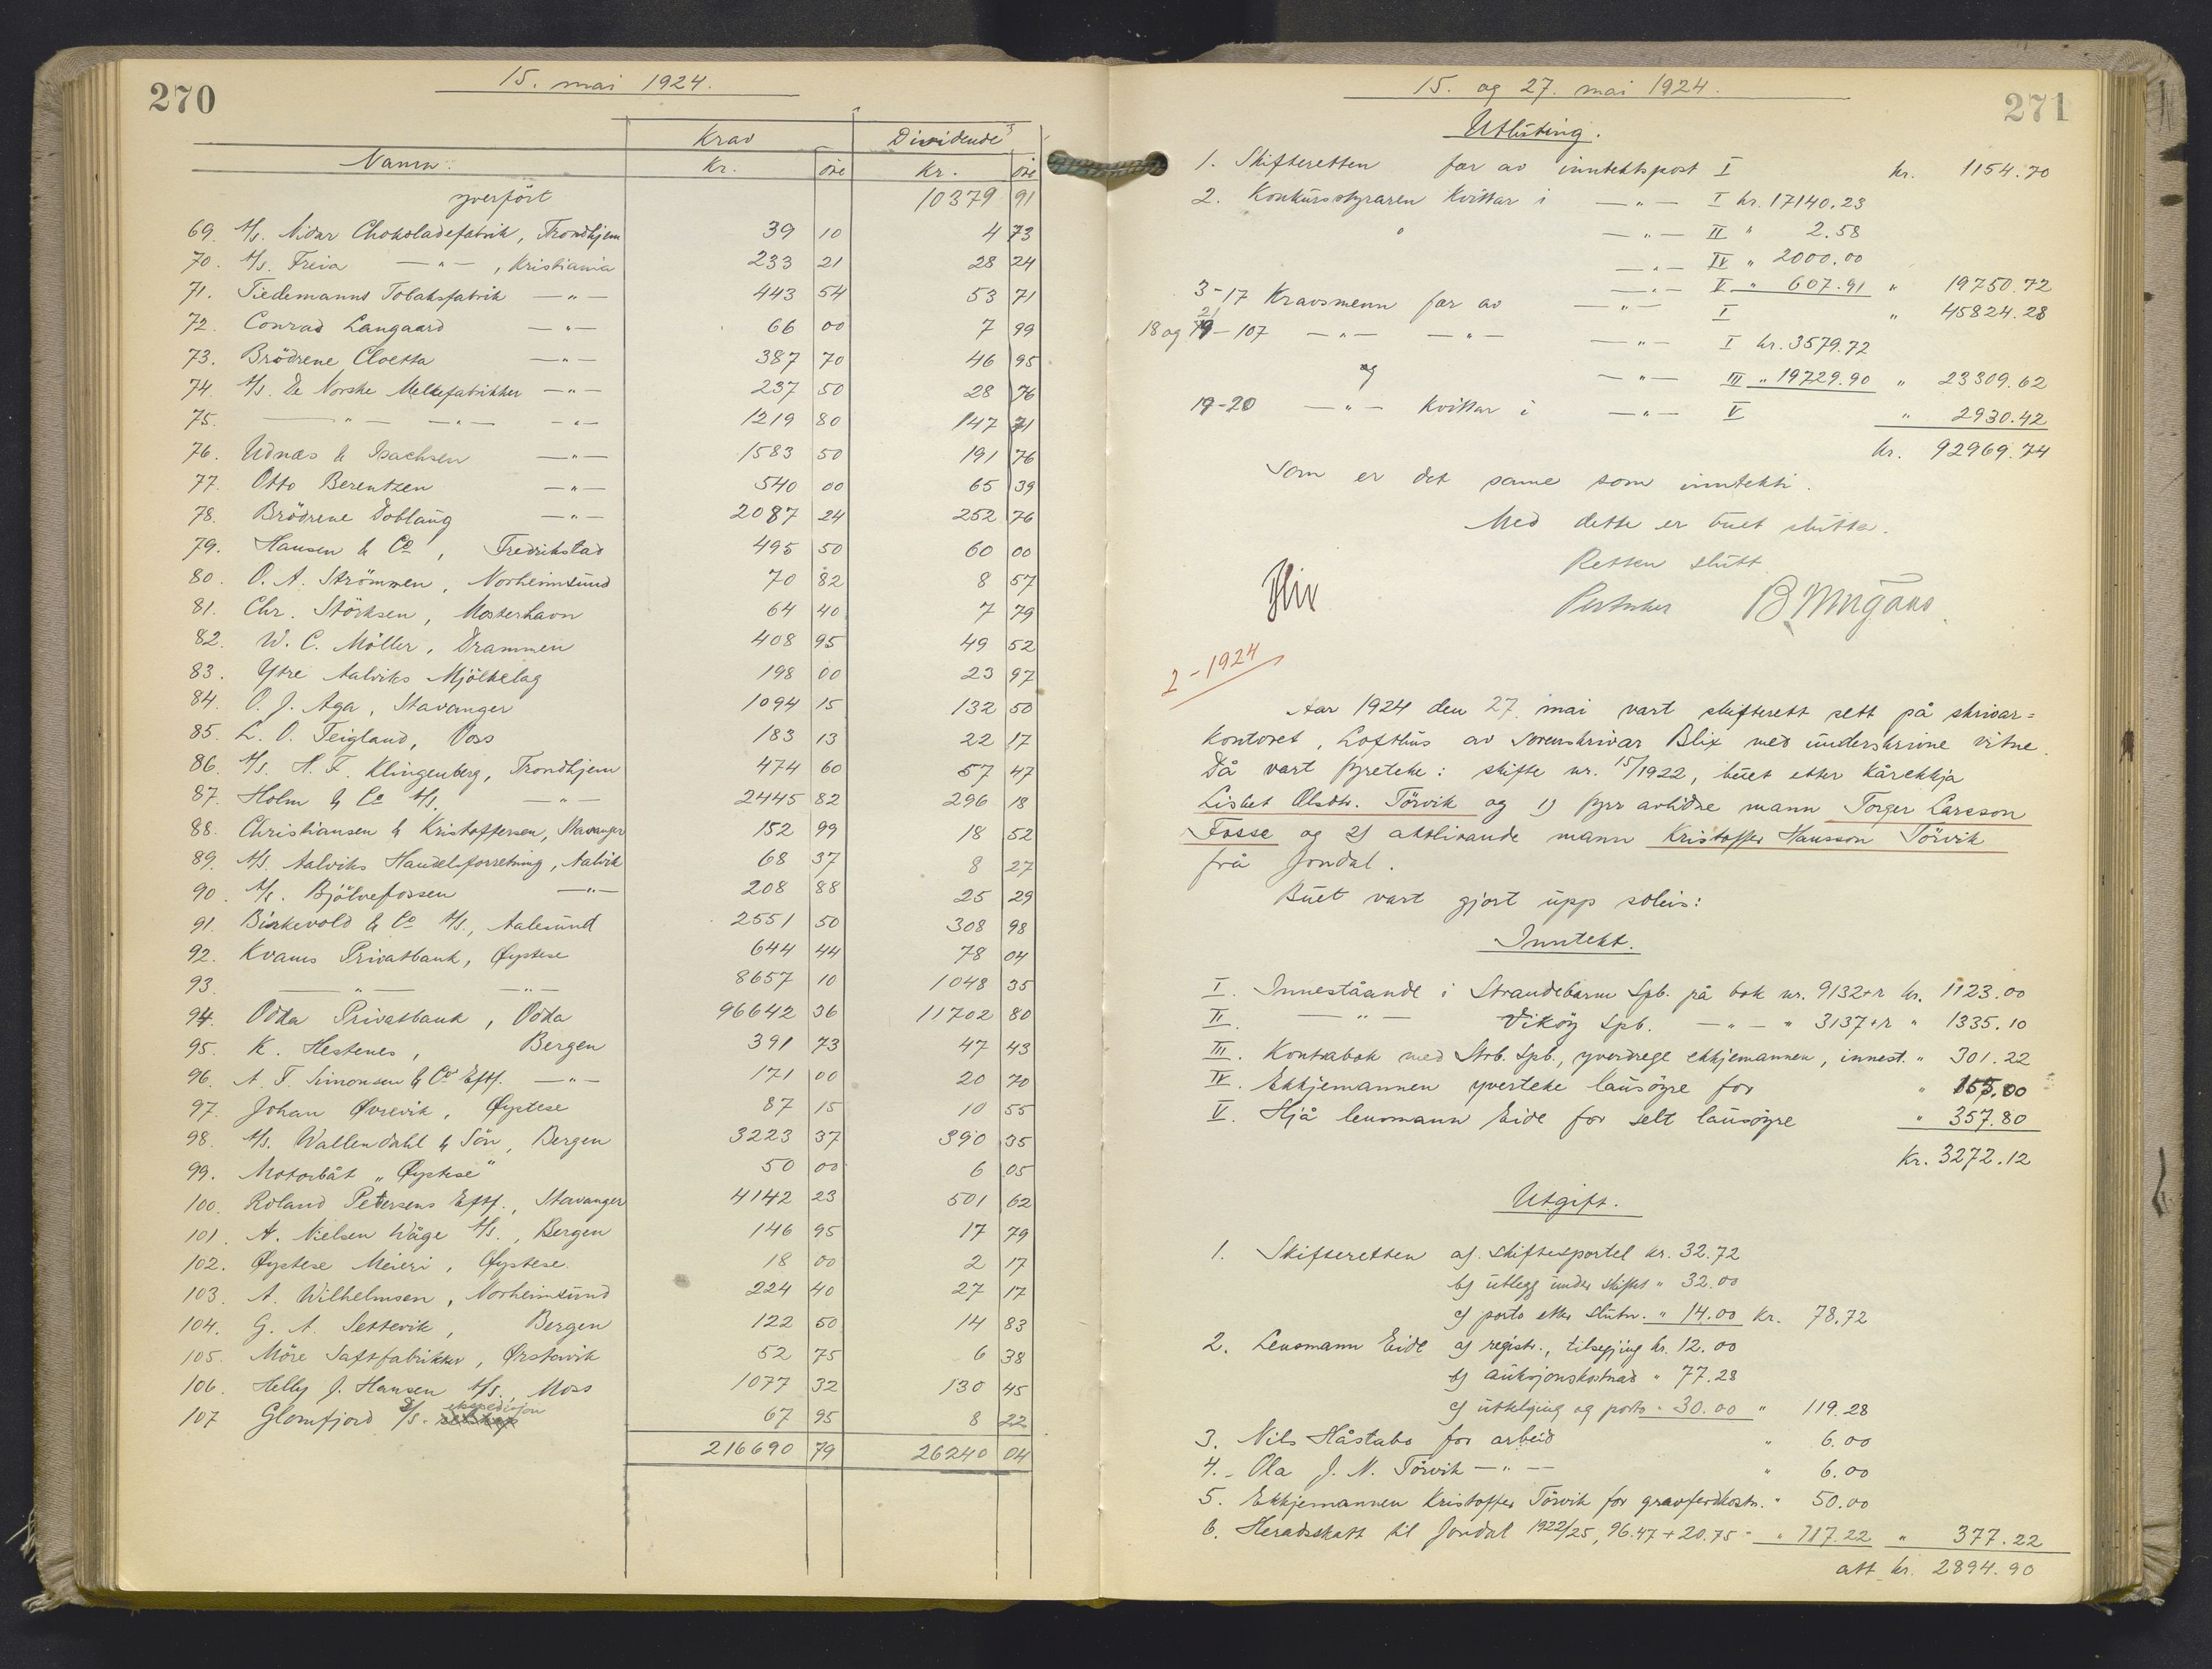 270
15. mai 1924.
Namn. Krav Dividende
Kr. öre Kr. öre
yverfört 10379 91
69. A/s. Nidar Chokoladefabrik, Trondhjem 39 10 4 73
70. A/s. Freia —"— , Kristiania 233 21 28 24
71. Tiedemanns Tobaksfabrik —"— 443 54 53 71
72. Conrad Langaard —"— 66 00 7 99
73. Brödrene Cloetta —"— 387 70 46 95
74. A/s. De Norske Melkefabrikker —"— 237 50 28 76
75. —"— —"— —"— 1219 80 147 71
76. Udnæs & Isachsen —"— 1583 50 191 76
77. Otto Berentzen —"— 540 00 65 39
78. Brödrene Dobloug —"— 2087 24 252 76
79. Hansen & Co, Fredrikstad 495 50 60 00
80. O. A. Strömmen, Norheimsund 70 82 8 57
81. Chr. Störksen, Mosterhavn 64 40 7 79
82. W. C. Möller, Drammen 408 95 49 52
83. Ytre Aalviks Mjölkelag 198 00 23 97
84. O. J. Aga, Stavanger 1094 15 132 50
85. L. O. Teigland, Voss 183 13 22 17
86. A/s. H. F. Klingenberg, Trondhjem 474 60 57 47
87. Holm & Co A/s. —"— 2445 82 296 18
88. Christiansen & Kristoffersen, Stavanger 152 99 18 52
89. A/s. Aalviks Handelsforretning, Aalvik 68 37 8 27
90. A/s. Bjölvefossen —"— 208 88 25 29
91. Birkevold & Co A/s., Aalesund 2551 50 308 98
92. Kvams Privatbank, Øystese 644 44 78 04
93. —"— —"— 8657 10 1048 35
94. Odda Privatbank, Odda 96642 36 11702 80
95. K. Hestenes, Bergen 391 73 47 43
96. A. F. Simonsen & Co's Eftf. —"— 171 00 20 70
97. Johan Øvrevik, Øystese 87 15 10 55
98. A/s. Wallendahl & Sön, Bergen 3223 37 390 35
99. Motorbåt „Øystese" 50 00 6 05
100. Roland Petersens Eftf., Stavanger 4142 23 501 62
101. A. Nielsen Wåge A/s., Bergen 146 95 17 79
102. Øystese Meieri, Øystese. 18 00 2 17
103. A. Wilhelmsen, Norheimsund 224 40 27 17
104. G. A. Settevik, Bergen 122 50 14 83
105. Möre Saftfabrikker, Ørstavik 52 75 6 38
106. Helly J. Hansen A/s., Moss 1077 32 130 45
107 Glomfjord D/s. ekspedisjon 67 95 8 22
216690 79 26240 04
271
15. og 27. mai 1924.
Utluting.
1. Skifteretten fær av inntektspost I kr. 1154.70
2. Konkursstyraren kvittar i —"— I kr. 17140.23
" —"— II " 2.58
—"— IV " 2000.00
—"— V " 607.91 " 19750.72
3-17 Kravsmenn fær av —"— I " 45824.28
18 og 21-107 —"— —"— —"— I kr. 3579.72
og —"— III " 19729.90 " 23309.62
19-20 —"— kvittar i —"— V " 2930.42
kr. 92969.74
Som er det same som inntekti.
Med dette er buet slutta.
Retten slutt
Blix
2-1924
Aar 1924 den 27. mai vart skifterett sett på skrivar=
kontoret, Lofthus av sorenskrivar Blix med underskrivne vitne.
Då vart fyreteke: skifte nr. 15/1922, buet etter kårekkja
Lisbet Olsdtr. Törvik og 1) fyrr avlidne mann Torger Larsson
Fosse og 2) attlivande mann Kristoffer Hansson Törvik
frå Jondal.
Buet vart gjort upp soleis:
Inntekt.
I. Inneståande i Strandebarm Spb. på bok nr. 9132+r kr. 1123.00
II. —"— Vikøy Spb. —"— " 3137+r " 1335.10
III. Kontrabok med Strb. Spb., yverdrege ekkjemannen, innest. " 301.22
IV. Ekkjemannen yverteke lausöyre for " 155.00
V. Hjå lensmann Eide for selt lausöyre " 357.80
Kr. 3272.12
Utgift.
1. Skifteretten a) skiftesportel kr. 32.72
b) utlegg under skiftet " 32.00
c) porto etter slutn. " 14.00 kr. 78.72
2. Lensmann Eide a) registr., tilsegjing kr. 12.00
b) auksjonskostnad " 77.28
c) utteljing og porto " 30.00 " 119.28
3. Nils Håstabo for arbeid " 6.00
4. Ola J. N. Törvik —"— " 6.00
5. Ekkjemannen Kristoffer Törvik for gravferdkostn. " 50.00
6. Heradskatt til Jondal 1922/25, 96.47 + 20.75 = " 117.22 " 377.22
att kr. 2894.90